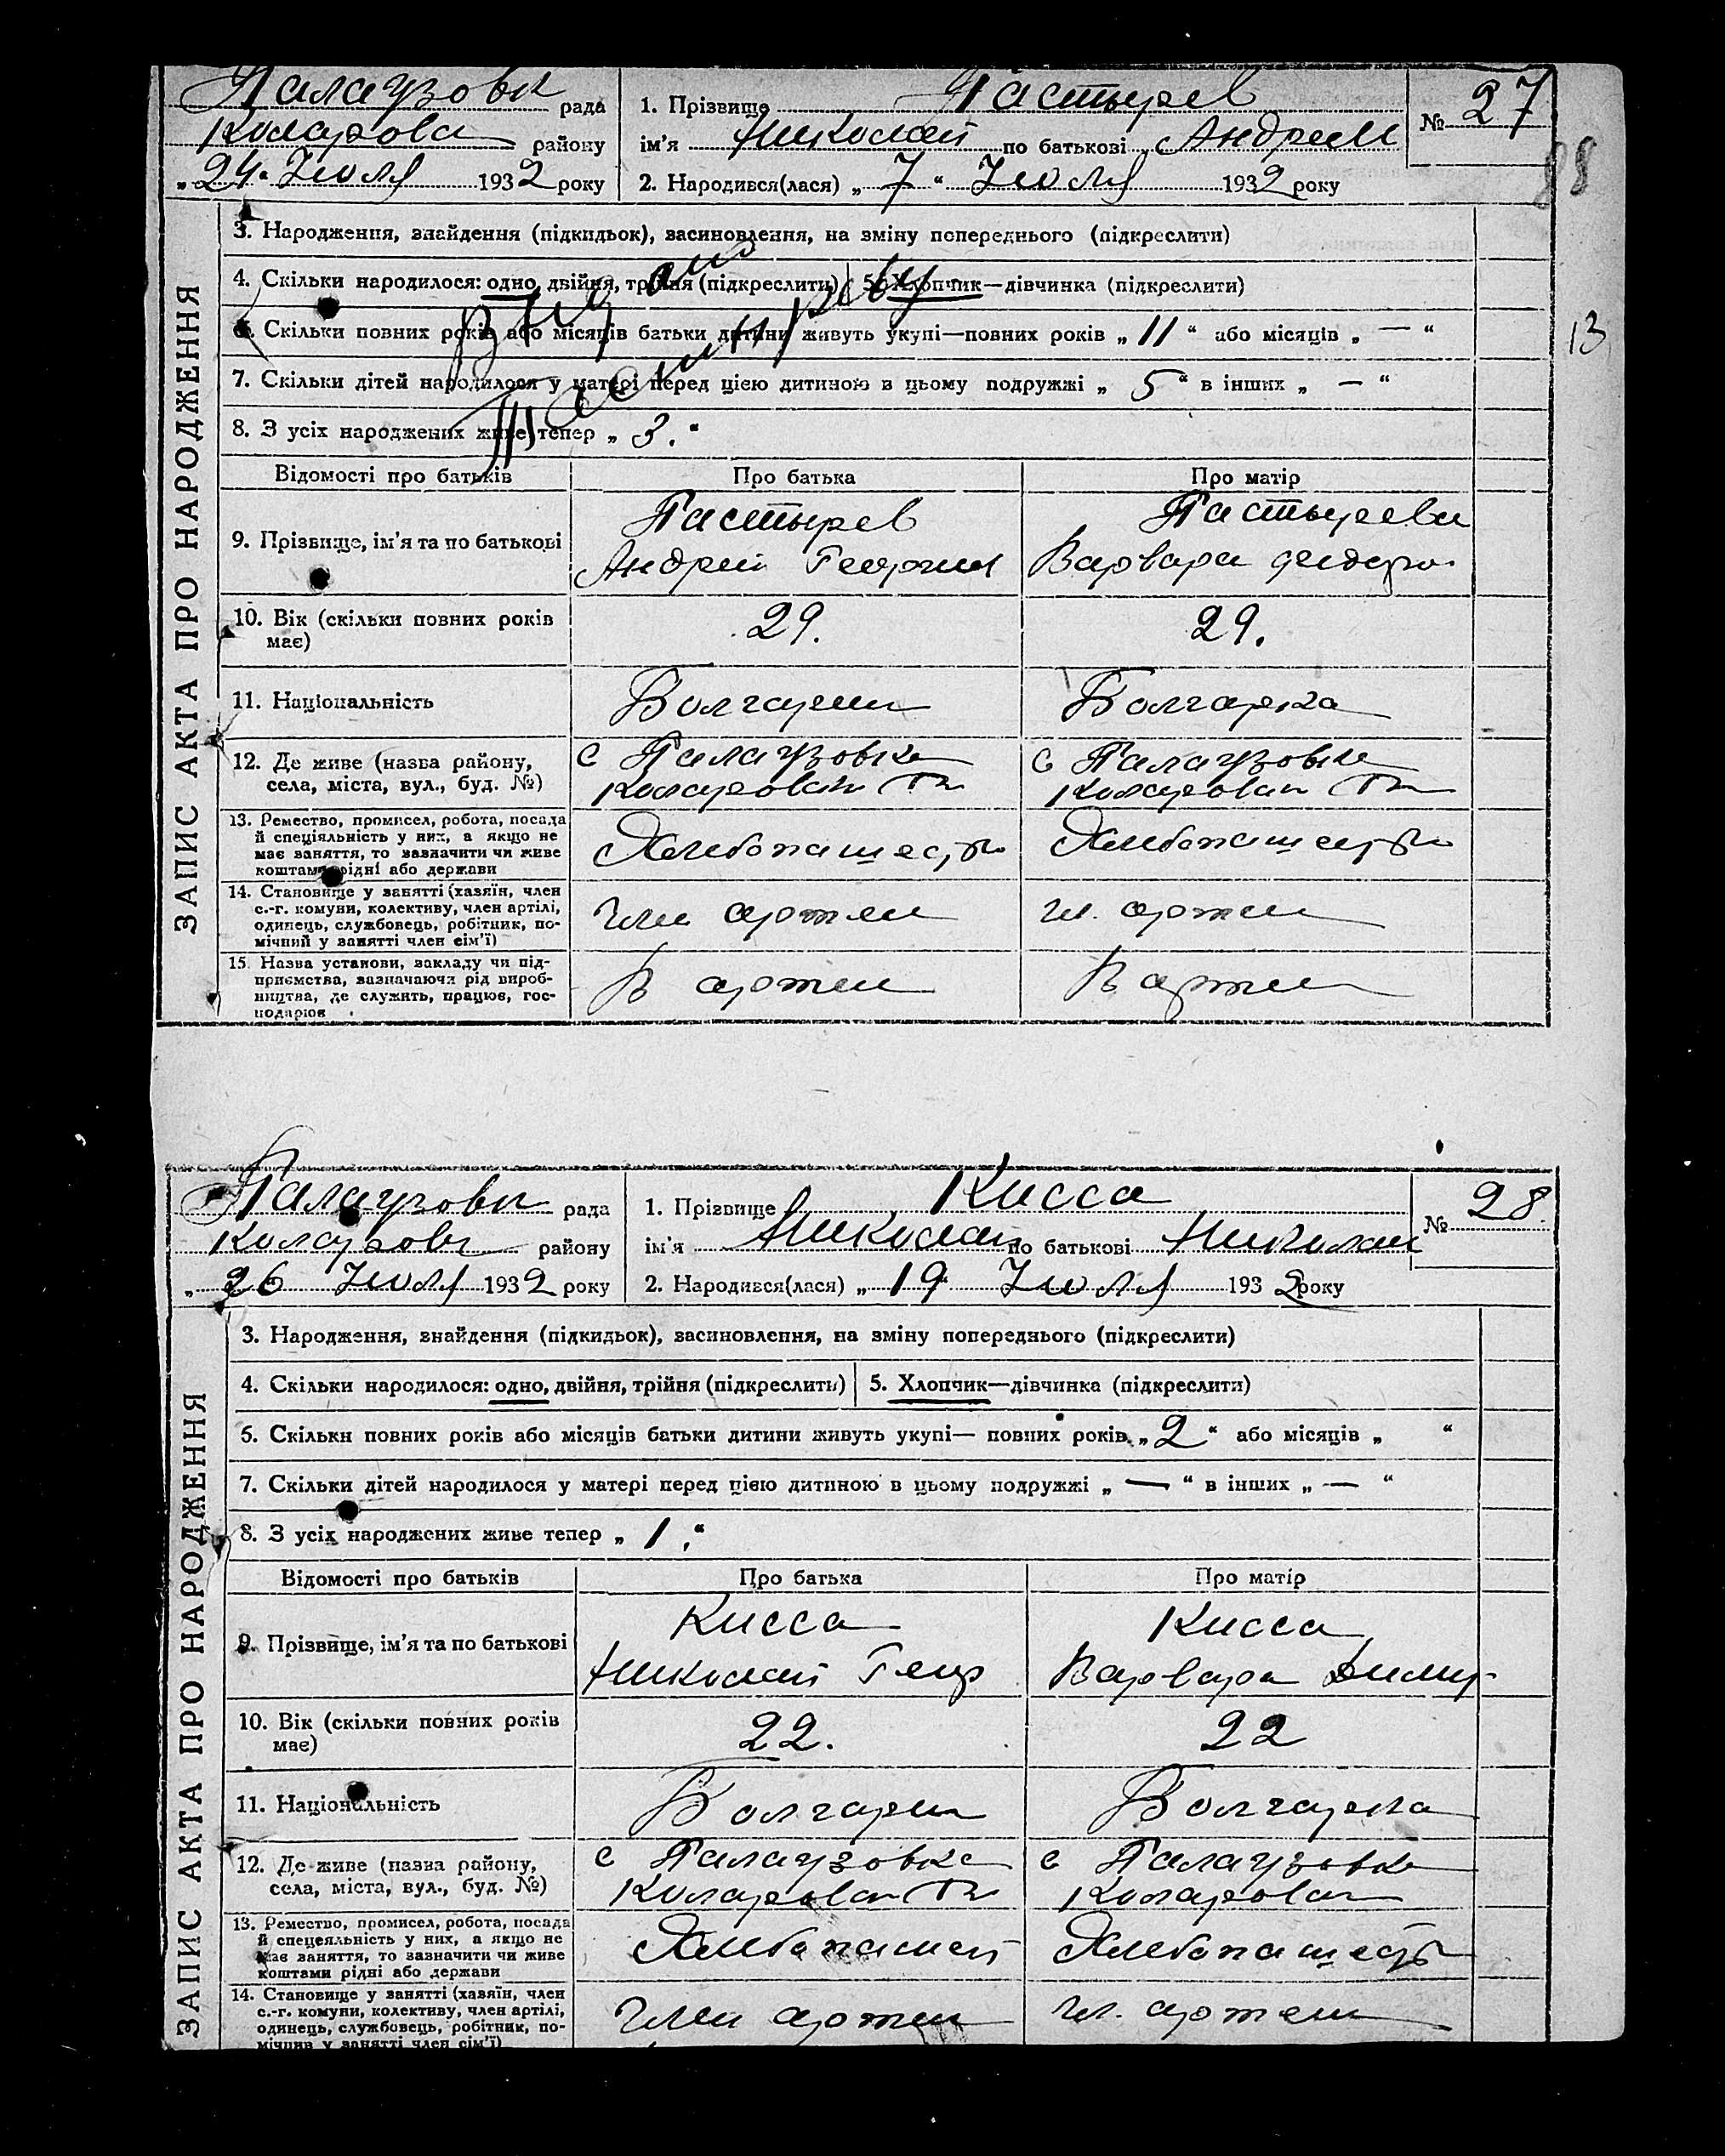 Палаузовк рада
Коларова району
„24“ Июля 1932 року
1. Прізвище Пастырев
ім'я Николай по батькові Андреев
2. Народився(лася) „7“ Июля 1932 року
№ 27
88
ЗАПИС АКТА ПРО НАРОДЖЕННЯ
3. Народження, знайдення (підкидьок), засиновлення, на зміну попереднього (підкреслити)
4. Скільки народилося: одно, двійня, трійня (підкреслити) 5. Хлопчик—дівчинка (підкреслити)
6. Скільки повних років або місяців батьки дитини живуть укупі—повних років „11“ або місяців „—“
13
7. Скільки дітей народилося у матері перед цією дитиною в цьому подружжі „5“ в інших „—“
8. З усіх народжених живе тепер „3.“
Відомості про батьків Про батька Про матір
9. Прізвище, ім'я та по батькові
Пастырев
Андрей Георгиев
Пастырева
Варвара
10. Вік (скільки повних років
має)
29.
29.
11. Національність Болгарин Болгарка
12. Де живе (назва району,
села, міста, вул., буд. №)
с Палаузовка
Коларован Рн
с Палаузовка
Коларован Рн
13. Ремество, промисел, робота, посада
й спеціяльність у них, а якщо не
має заняття, то зазначити чи живе
коштами рідні або держави
Хлебопашество
Хлебопашество
14. Становище у занятті (хазяїн, член
с.-г. комуни, колективу, член артілі,
одинець, службовець, робітник, по-
мічний у занятті член сім'ї)
член артели
чл. артели
15. Назва установи, закладу чи під-
приємства, зазначаючи рід вироб-
ництва, де служить, працює, гос-
подарює
В артели
В артели
Палаузовк рада
Коларов району
„26 Июля 1932 року
1. Прізвище Кисса
ім'я Николай по батькові Николаев
2. Народився(лася) „19“ Июля 1932 року
№ 28.
ЗАПИС АКТА ПРО НАРОДЖЕННЯ
3. Народження, знайдення (підкидьок), засиновлення, на зміну попереднього (підкреслити)
4. Скільки народилося: одно, двійня, трійня (підкреслити) 5. Хлопчик—дівчинка (підкреслити)
6. Скільки повних років або місяців батьки дитини живуть укупі— повних років „2“ або місяців „ “
7. Скільки дітей народилося у матері перед цією дитиною в цьому подружжі „—“ в інших „—“
8. З усіх народжених живе тепер „1.“
Відомості про батьків Про батька Про матір
9. Прізвище, ім'я та по батькові
Кисса
Николай Геор
Кисса
Варвара Димитр
10. Вік (скільки повних років
має)
22.
22
11. Національність Болгарин Болгарка
12. Де живе (назва району,
села, міста, вул., буд. №)
с Палаузовка
Коларован Рн
с Палаузовка
Коларован
13. Ремество, промисел, робота, посада
й спецеяльність у них, а якщо не
має заняття, то зазначити чи живе
коштами рідні або держави
Хлебопашест
Хлебопашество
14. Становище у занятті (хазяїн, член
с.-г. комуни, колективу, член артілі,
одинець, службовець, робітник, по-
мічний у занятті член сім'ї)
член артели
чл. артели